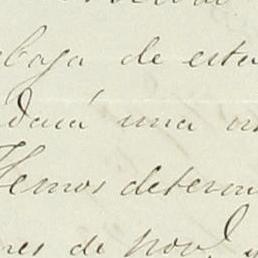 baja de esta
dará una
Hemos determ
nes de nov.